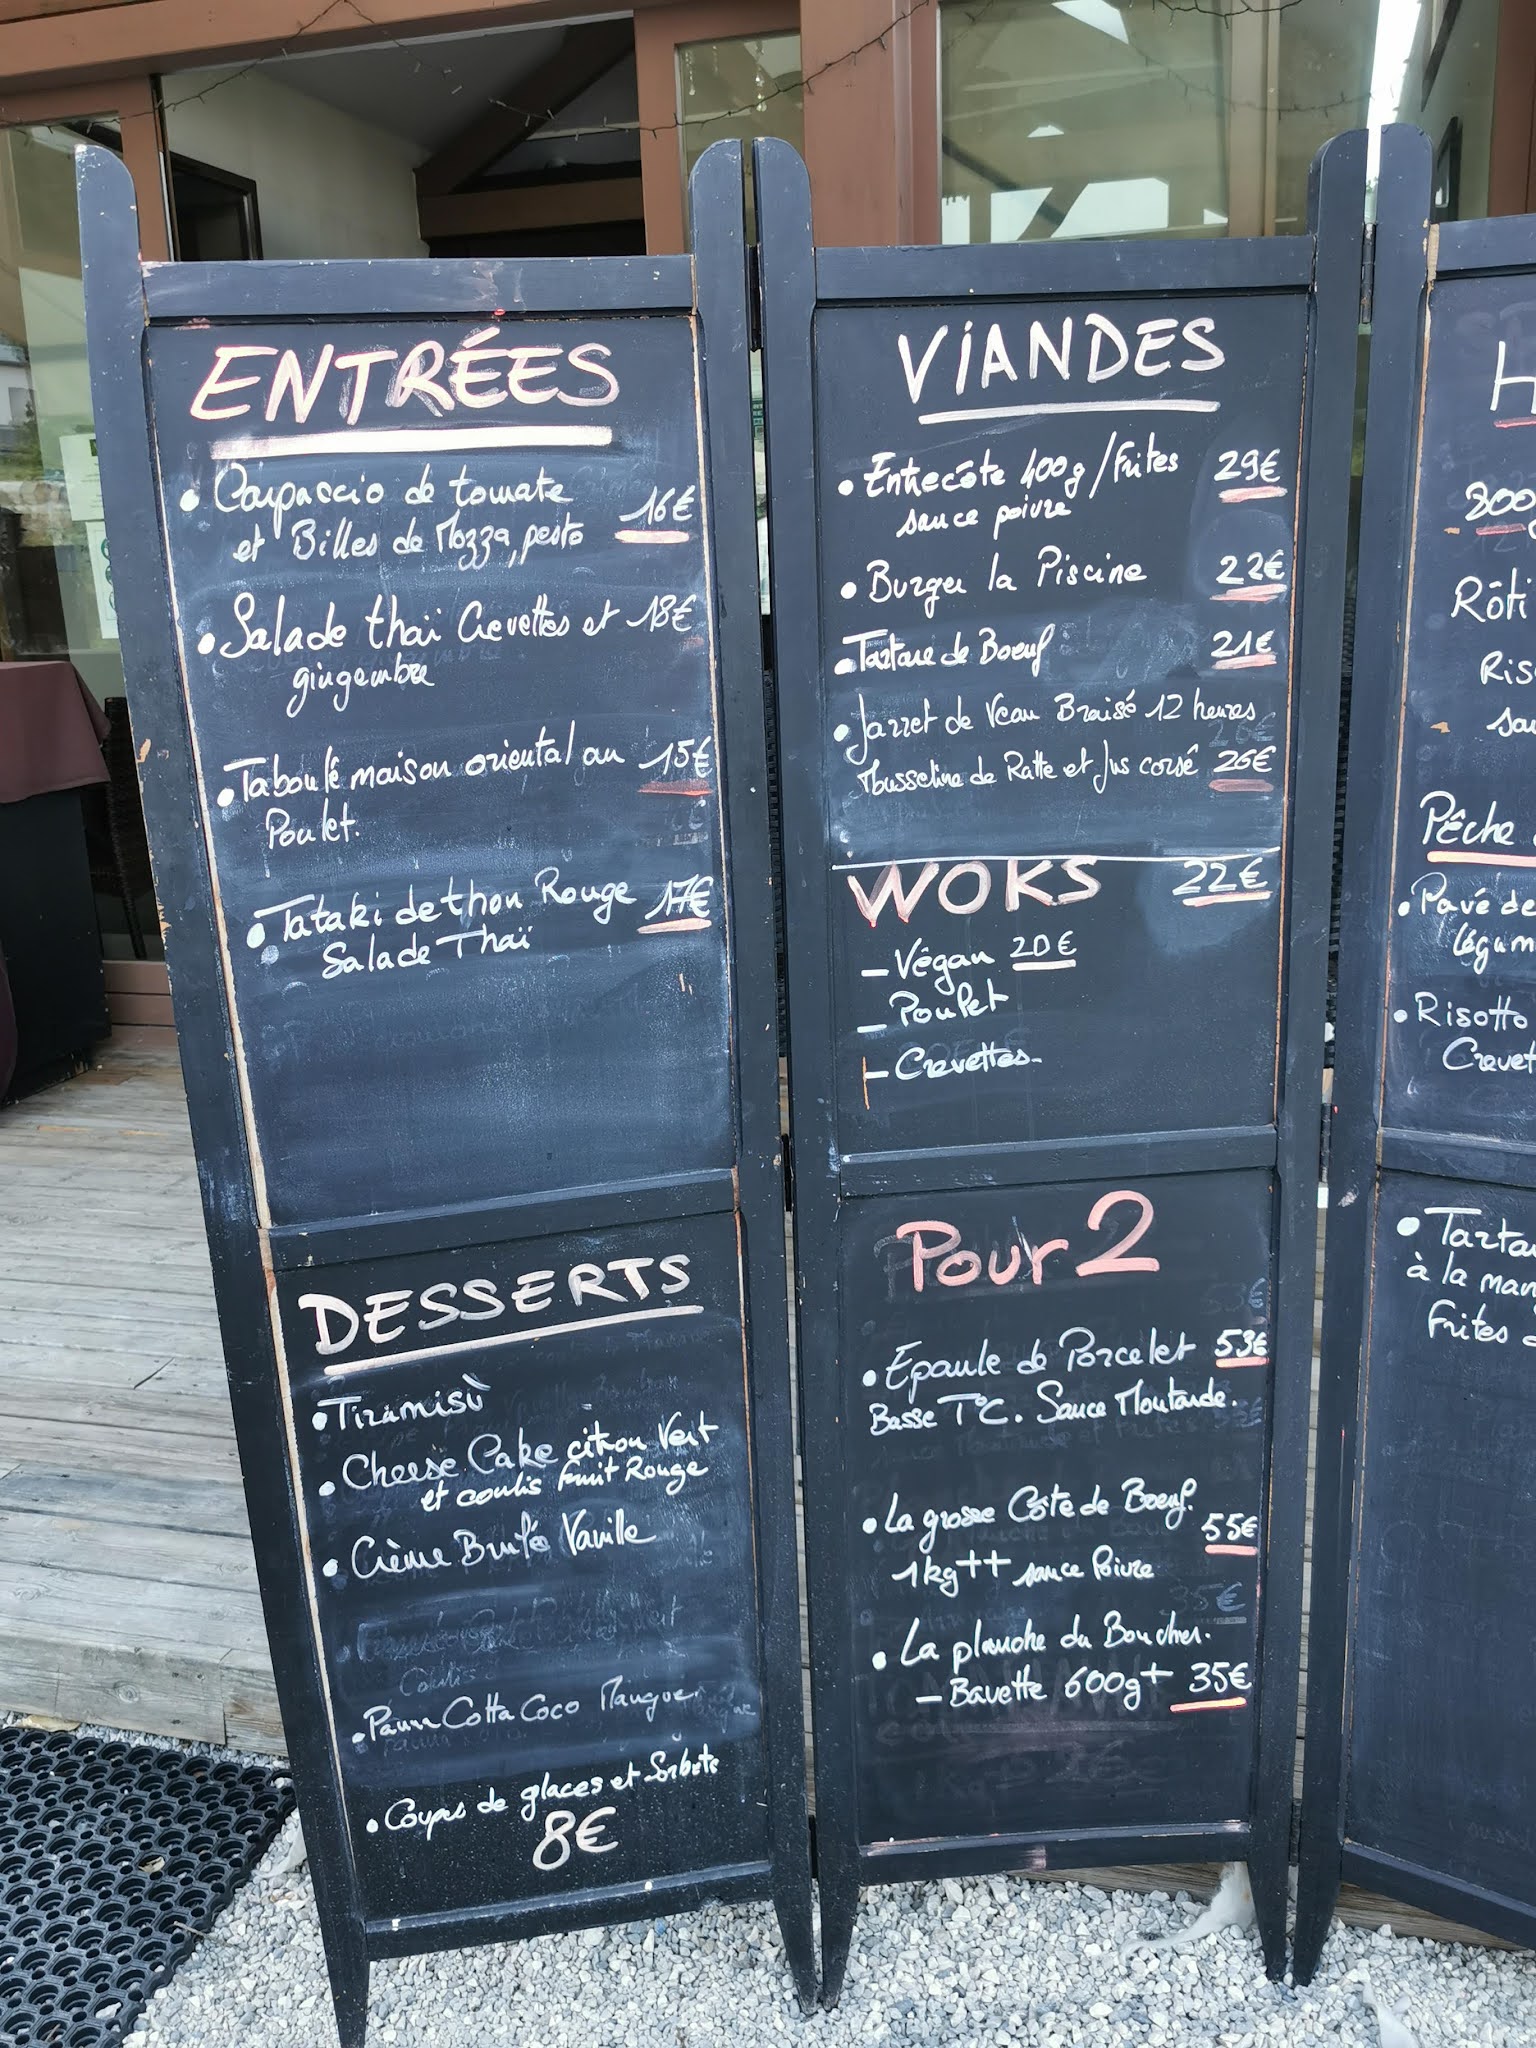 ENTRÉES
• Carpaccio de tomate
et Billes de Mozza, pesto 16€
• Salade thaï Crevettes et 18€
gingembre
• Taboulé maison oriental au 15€
Poulet.
• Tataki de thon Rouge 17€
Salade Thaï
DESSERTS
• Tiramisù
• Cheese Cake citron Vert
et coulis fruit Rouge
• Crème Brulée Vanille
• Panna Cotta Coco Mangue
• Coupes de glaces et Sorbets
8€
VIANDES
• Entrecôte 400g/Frites 29€
sauce poivre
• Burger la Piscine 22€
• Tartare de Boeuf 21€
• Jarret de Veau Braisé 12 heures
Mousseline de Ratte et Jus corsé 26€
WOKS 22€
- Végan 20€
- Poulet
- Crevettes.
Pour 2
• Epaule de Porcelet 53€
Basse T°C. Sauce Moutarde.
• La grosse Côte de Boeuf.
1kg++ sauce Poivre 55€
• La planche du Boucher.
- Bavette 600g+ 35€
H
300g
Rôti
Ris
sau
Pêche
• Pavé de
légum
• Risotto
Crevet
• Tartar
à la man
Frites